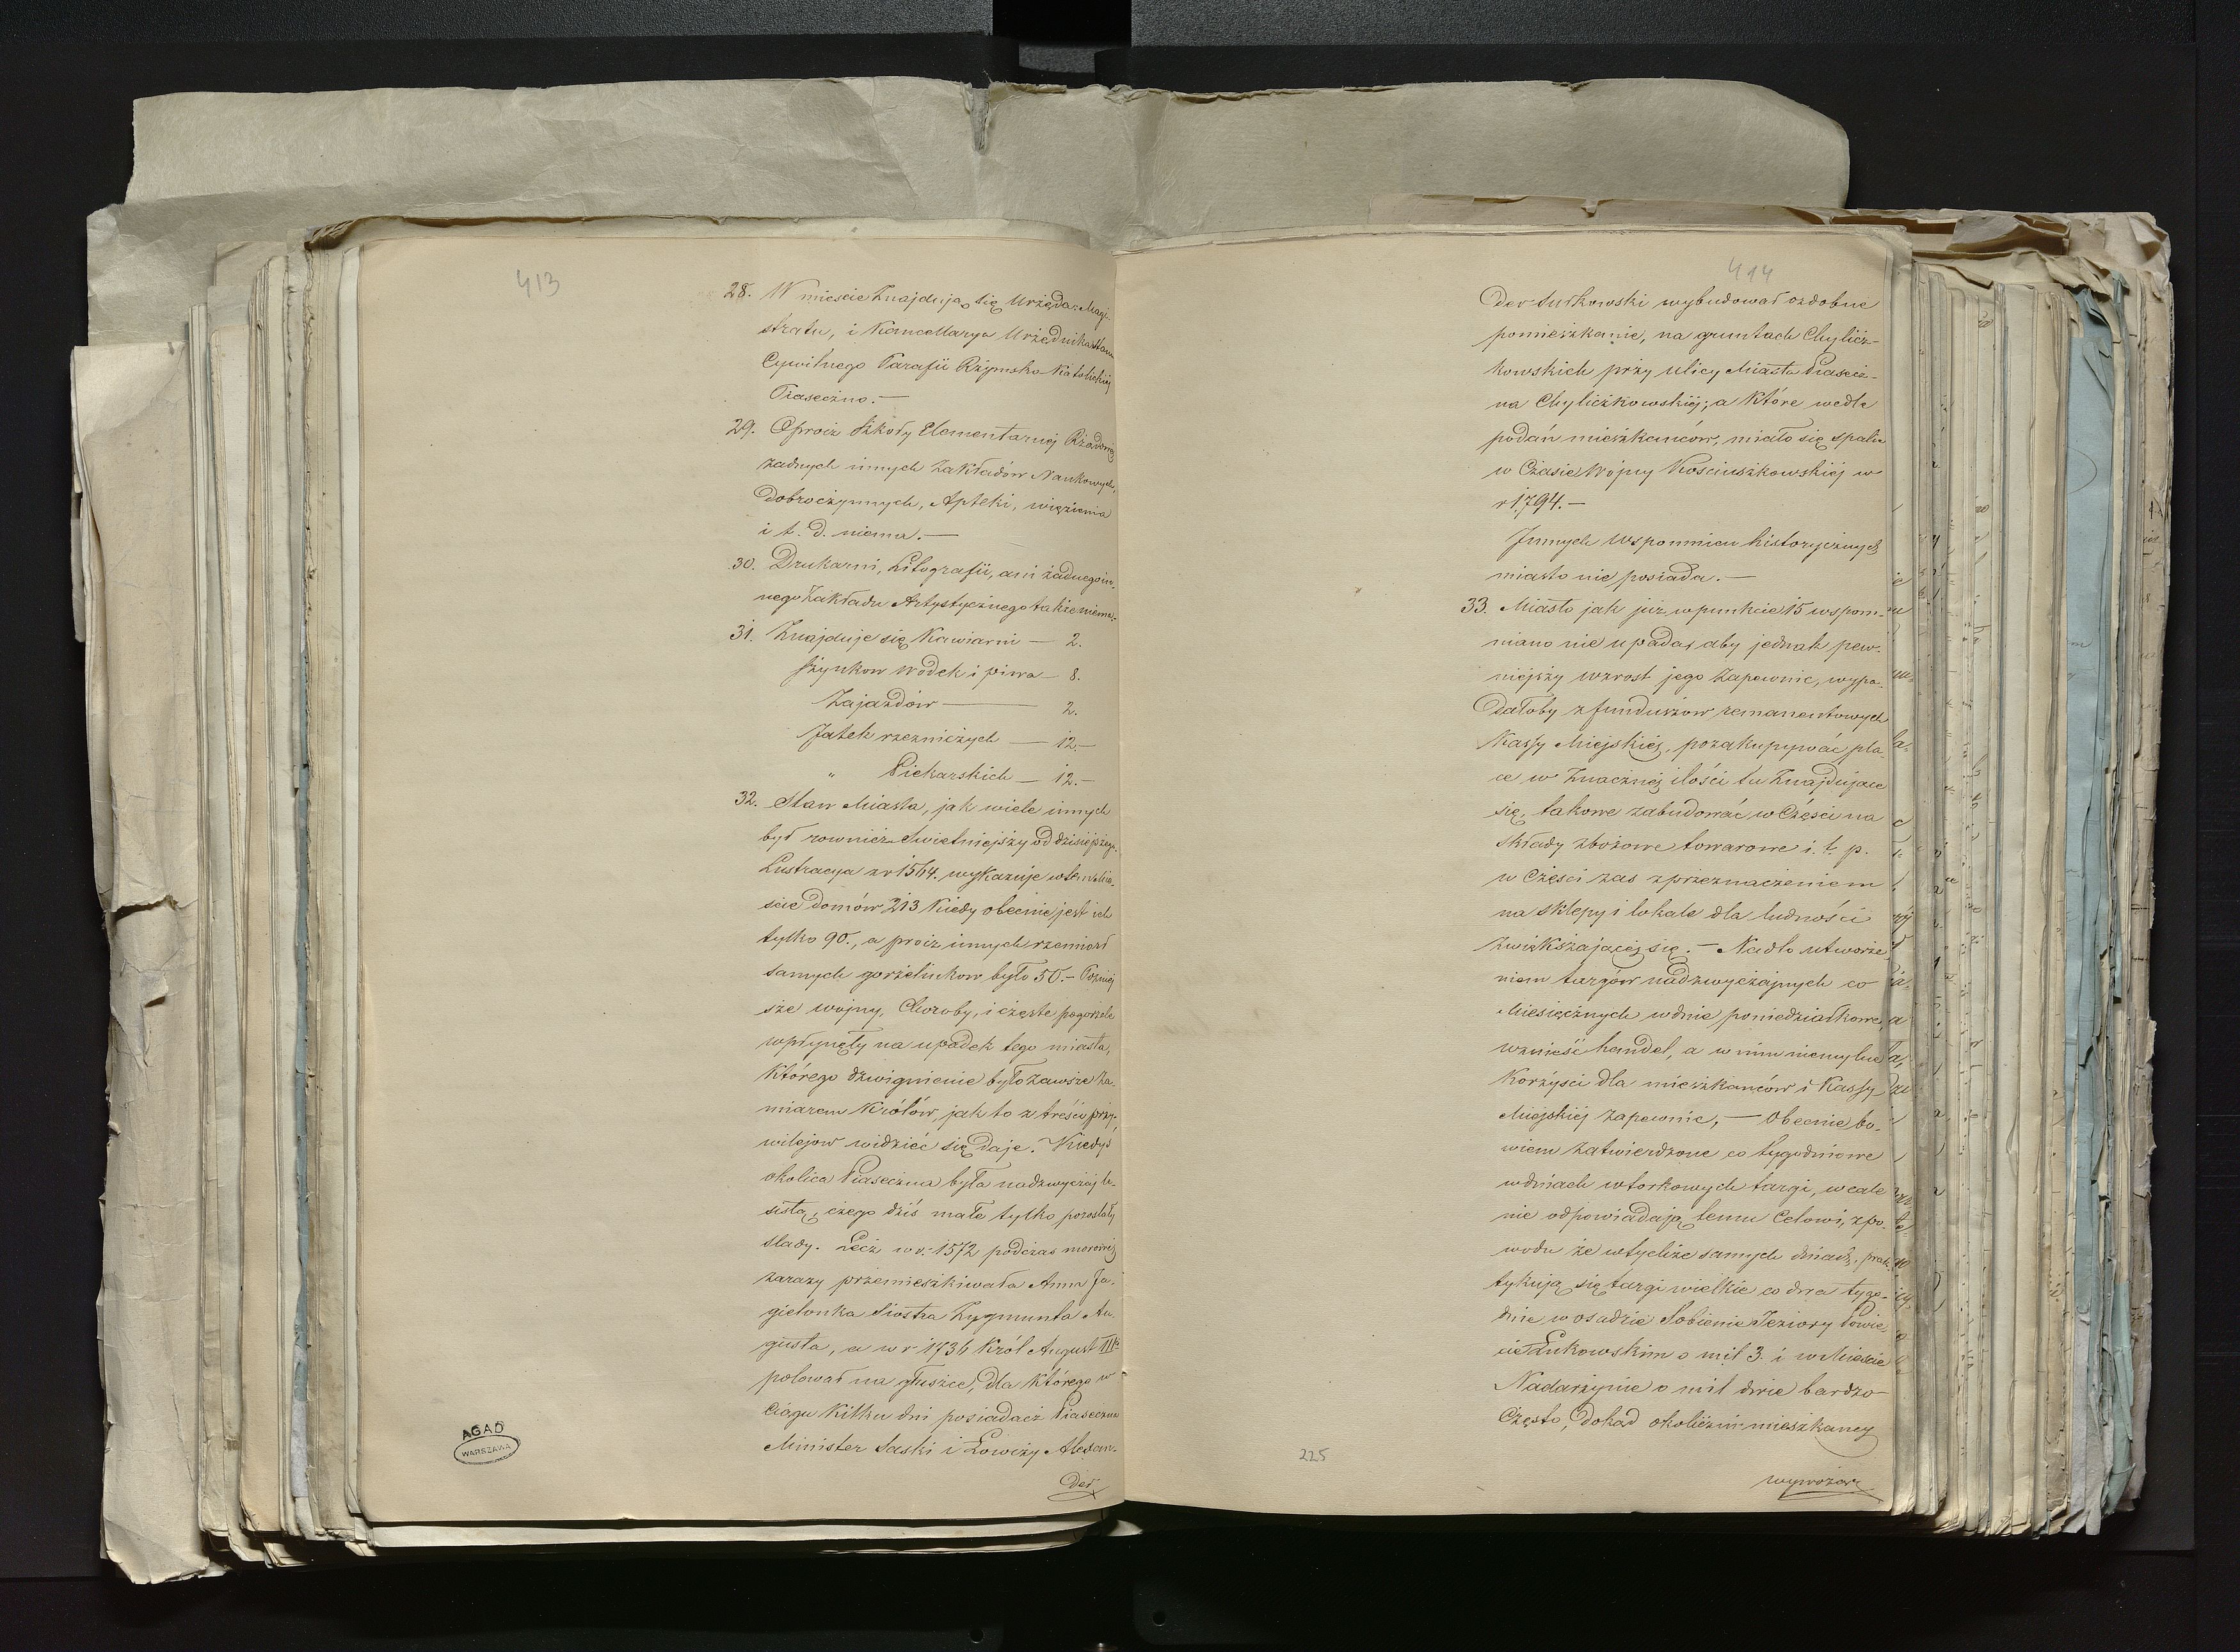 413
28. W mieście znajdują się Urzęda: Magi-
stratu, i Kancellarya Urzędnika Stanu
Cywilnego Parafii Rzymsko Katolickiej
Piaseczno.—
29. Oprócz Szkoły Elementarnej Rządowej
żadnych innych Zakładów Naukowych,
dobroczynnych, Apteki, więzienia
i t. d. niema.—
30. Drukarni, Litografii, ani żadnego in-
nego Zakładu Artystycznego także niema.
31. Znajduje się Kawiarni — 2.
Szynkow wódek i piwa — 8.
Zajazdów — 2.
Jatek rzezniczych — 12.—
" Piekarskich — 12.—
32. Stan Miasta, jak wiele innych
był rownież świetniejszy od dzisiejszego.
Lustracya z r 1564. wykazuje w tem Mie-
ście domów 213 kiedy obecnie jest ich
tylko 90., a prócz innych rzemiosł
samych gorzelnikow było 50.— Pozniej
sze wojny, Choroby, i częste pogorzele
wpłynęły na upadek tego miasta,
którego dzwignienie było zawsze za-
miarem Królów, jak to z treści przy-
wilejow widzieć się daje. Kiedyś
okolica Piaseczna była nadzwyczaj le-
sistą, czego dziś małe tylko pozostały
slady. Lecz w r. 1572 podczas morowej
zarazy przemieszkiwała Anna Ja-
gielonka Siostra Zygmunta Au-
gusta, a w r 1736 Król August III
polował na głuszce, dla którego w
ciągu kilku dni posiadacz Piaseczna
Minister Saski i Łowczy Alexan-
der
AGAD
WARSZAWA
414
der Sułkowski wybudował ozdobne
pomieszkanie, na gruntach Chylicz-
kowskich przy ulicy Miasta Piasecz-
na Chyliczkowskiej; a które wedle
podań mieszkańców, miało się spalić
w Czasie Wojny Kosciuszkowskiej w
r 1794.—
Innych wspomnien historycznych
miasto nie posiada.—
33. Miasto jak już w punkcie 15 wspom-
niano nie upada, aby jednak pew-
niejszy wzrost jego zapewnić, wypa-
dałoby z funduszow remanentowych
Kassy Miejskiej, pozakupywać pla-
ce w znacznej ilości tu znajdujące
się, takowe zabudować w Części na
składy zbożowe towarowe i. t. p.
w Częsci zas z przeznaczeniem
na sklepy i lokale dla ludności
zwiększającej się.— Nadto utworze
niem targów nadzwyczajnych co
Miesięcznych w dnie poniedziałkowe,
wznieść handel, a w nim niemylne
Korzyści dla mieszkanców i Kassy
Miejskiej zapewnić,— Obecnie bo-
wiem zatwierdzone co tygodniowe
w dniach wtorkowych targi, wcale
nie odpowiadają temu Celowi, z po-
wodu że w tychże samych dniach, prak-
tykują się targi wielkie co dwa tygo-
dnie w osadzie Sobienie Jeziory Powie-
cie Łukowskim o mil 3. i w Mieście
Nadarzynie o mil dwie bardzo
Często, dokąd okoliczni mieszkancy
wywożąc
225